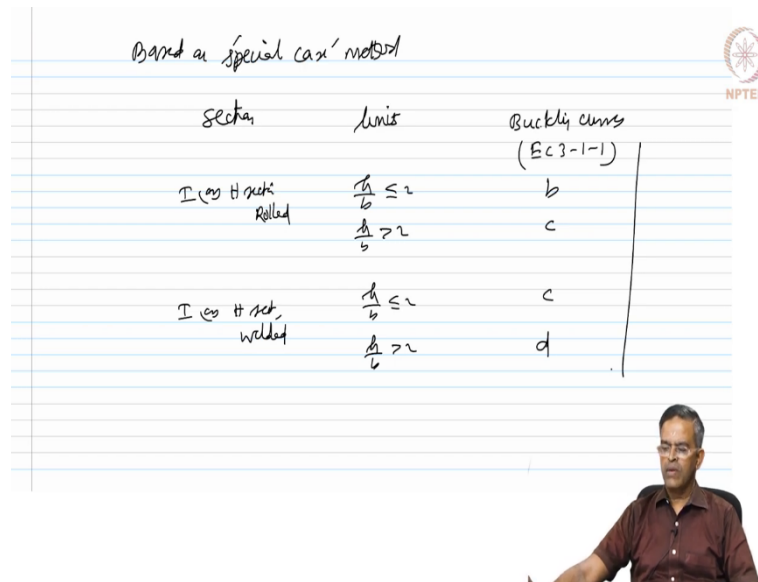 Based on 'special case' method
NPTEL
Section limit Buckling curves
(EC3-1-1)
I (or) H section h/b ≤ 2 b
Rolled
h/b > 2 c
I (or) H sect, h/b ≤ 2 c
welded
h/b > 2 d